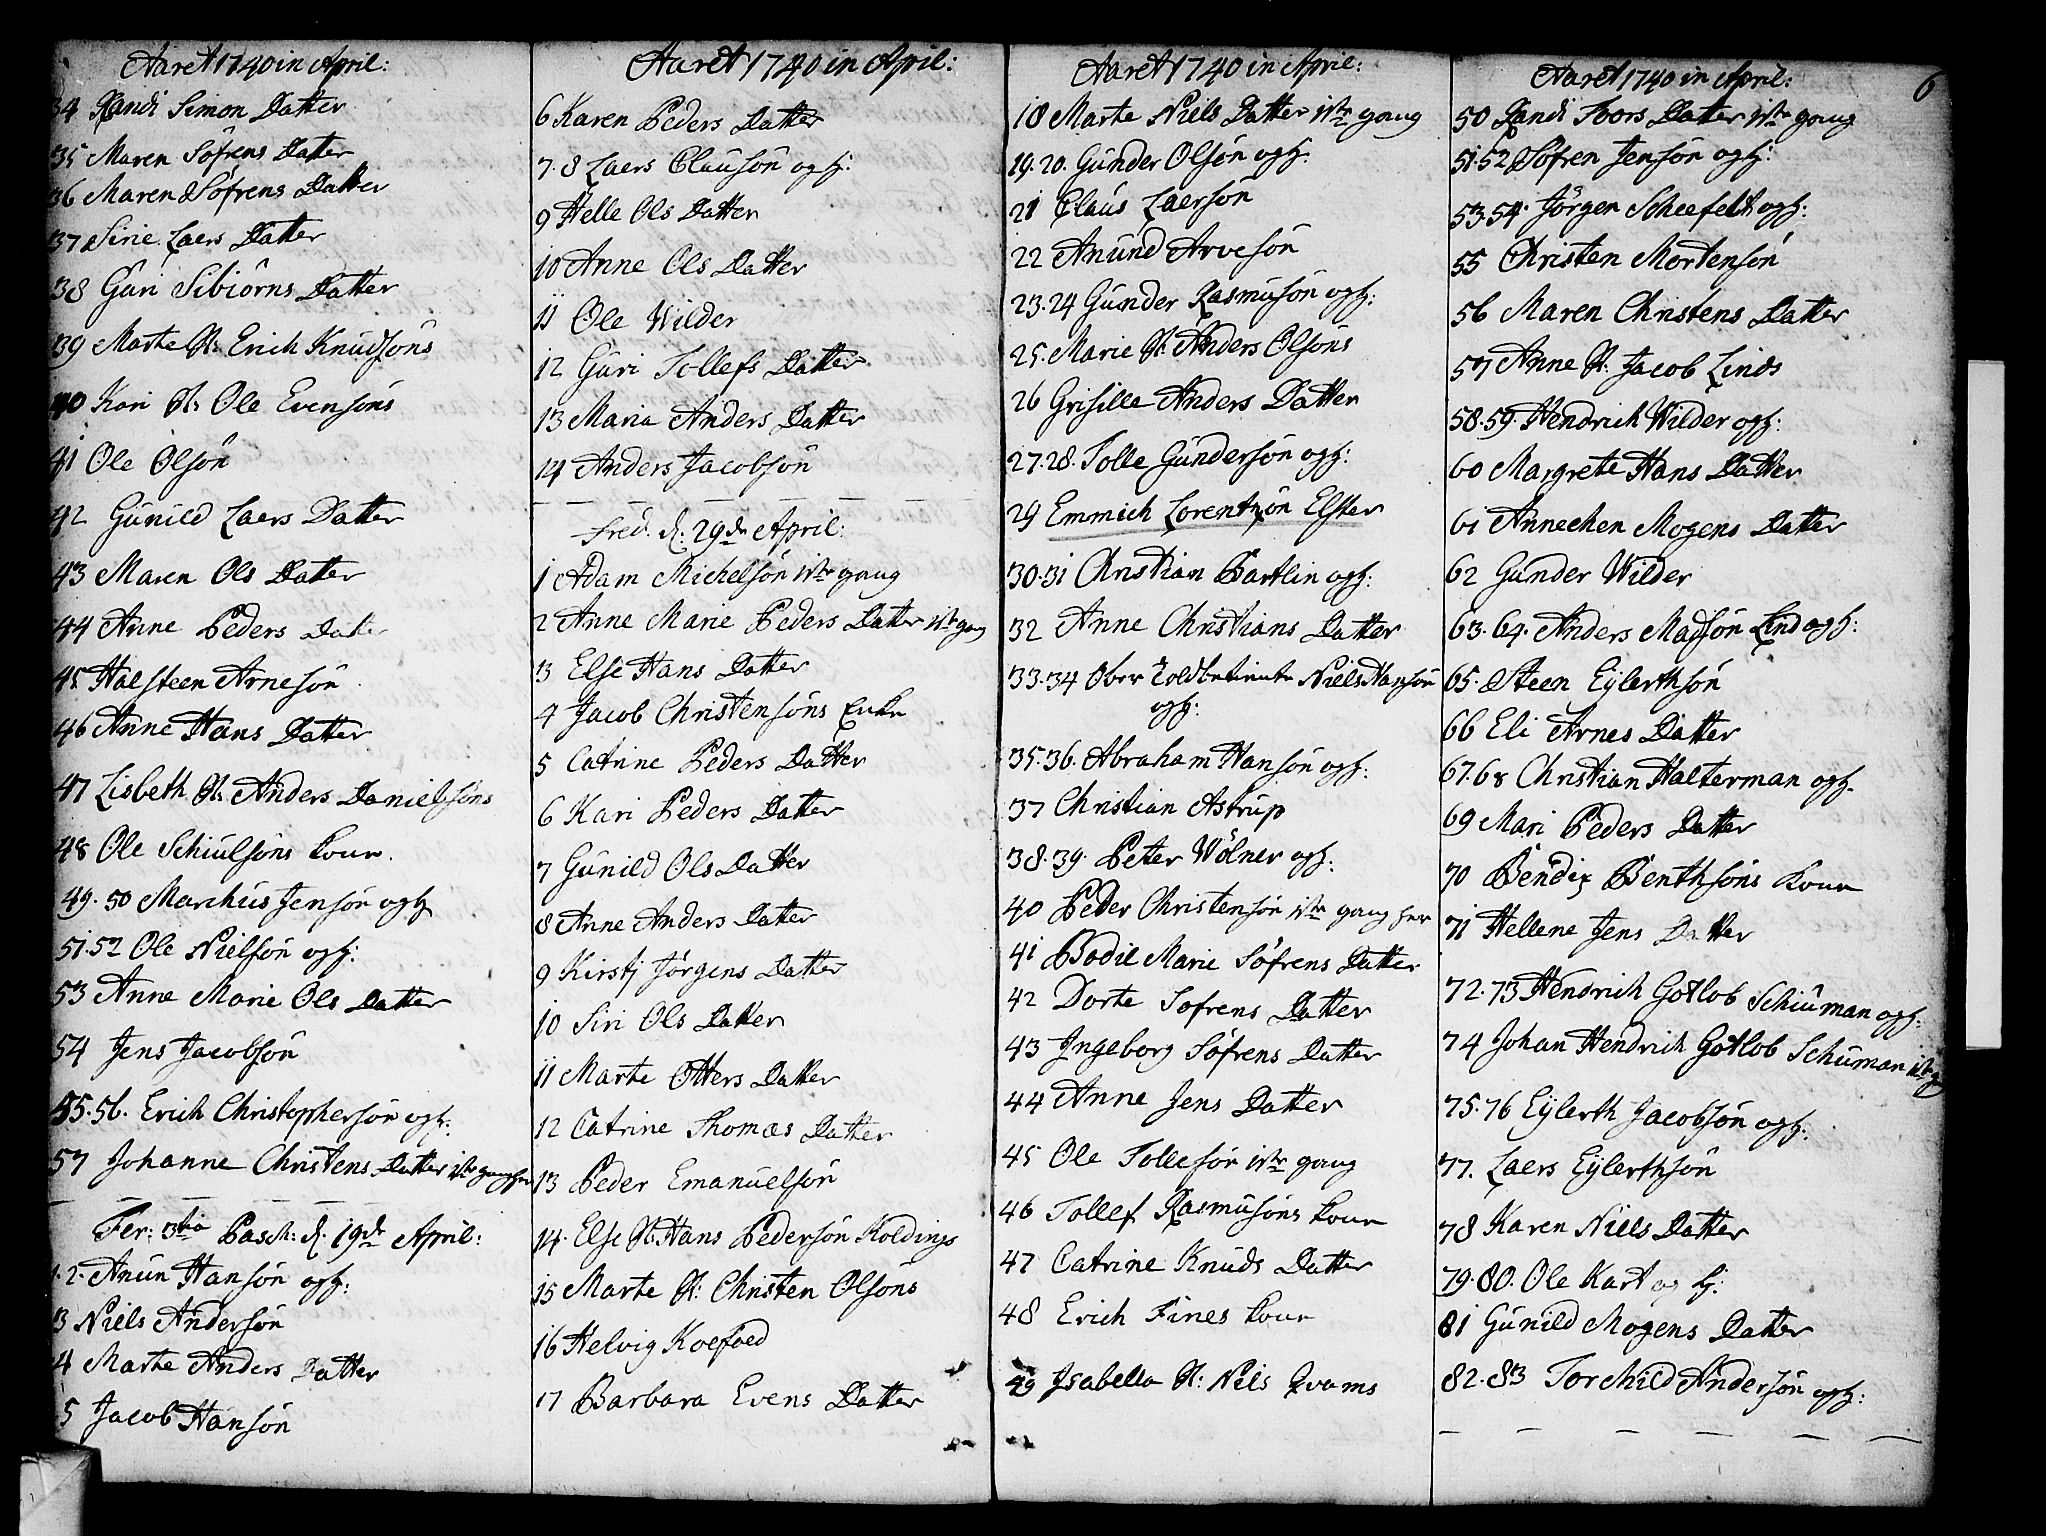 Aaret 1740 in April:
34 Randi Simon Datter
35 Maren Söfrens Datter
36 Maren Söfrens Datter
37 Sirie Laers Datter
38 Guri Sibiörns Datter
39 Marte H: Erich Knudsöns
40 Kari H: Ole Evensöns
41 Ole Olsön
42 Gunild Laers Datter
43 Maren Ols Datter
44 Anne Peders Datter
45 Halsteen Arnesön
46 Anne Hans Datter
47 Lisbeth H: Anders Danielsöns
48 Ole Schiulsöns kone
49. 50 Marchus Jensön og H
51. 52 Ole Nielsön og H:
53 Anne Marie Ols Datter
54 Jens Jacobsön
55. 56. Erich Christophersön og H:
57 Johanne Christens Datter 1ste gang her
Fer: 3tia Pasch: d. 19de April:
1. 2. Anun Hansön og H:
3 Niels Andersön
4 Marte Anders Datter
5 Jacob Hansön
Aaret 1740 in April:
6 Karen Peders Datter
7. 8 Laers Clausön og H:
9 Helle Ols Datter
10 Anne Ols Datter
11 Ole Wilder
12 Guri Tollefs Datter
13 Maria Anders Datter
14 Anders Jacobsön
Fred. d: 29de April:
1 Adam Michelsön 1ste gang
2 Anne Marie Peders Datter 1ste gang
3 Else Hans Datter
4 Jacob Christensöns Enke
5 Catrine Peders Datter
6 Kari Peders Datter
7 Gunild Ols Datter
8 Anne Anders Datter
9 Kirstj Jörgens Datter
10 Siri Ols Datter
11 Marte Otters Datter
12 Catrine Thomæs Datter
13 Peder Emanuelsön
14. Else H: Hans Pedersön Koldings
15 Marte H: Christen Olsöns
16 Helvig Koefoed
17 Barbara Evens Datter
Aaret 1740 in April:
18 Marte Niels Datter 1ste gang
19. 20. Gunder Olsön og H:
21 Claus Laersön
22 Anund Arvesön
23. 24 Gunder Rasmusön og H:
25. Marie H: Anders Olsöns
26 Grisille Anders Datter
27. 28. Tolle Gundersön og H:
29 Emmich Lorentzön Elster
30. 31 Christian Bartlin og H:
32 Anne Christians Datter
33. 34 Ober Toldbetiente Niels Hansön
og H:
35. 36. Abraham Hansön og H:
37 Christian Astrup
38. 39. Peter Wölner og H:
40 Peder Christensön 1ste gang her
41 Bodil Marie Söfrens Datter
42 Dorte Sofrens Datter
43 Ingeborg Söfrens Datter
44 Anne Jens Datter
45 Ole Tollesön 1ste gang
46 Tollef Rasmusöns kone
47 Catrine Knuds Datter
48 Erich Fines kone
49 Isabella H: Niels Qvams
6
Aaret 1740 in April:
50 Randi Toors Datter 1ste gang
51. 52 Söfren Jensön og H:
53. 54. Jörgen Scheefeldt og H:
55 Christen Mortensön
56 Maren Christens Datter
57 Anne H: Jacob Linds
58. 59. Hendrich Wilder og H:
60 Margrete Hans Datter
61 Annechen Mogens Datter
62 Gunder Wilder
63. 64. Anders Madsön Lind og H:
65. Steen Eylerthsön
66 Eli Arnes Datter
67. 68 Christian Halterman og H.
69 Mari Peders Datter
70 Bendix Benthsöns kone
71 Hellene Jens Datter
72. 73 Hendrich Gotlob Schiuman og H:
74 Johan Hendrich Gotlob Schuman 1ste g
75. 76 Eylerth Jacobsön og H:
77. Laers Eylerthsön
78 Karen Niels Datter
79. 80. Ole Kart og H:
81 Gunild Mogens Datter
82. 83 Torchild Andersön og H: